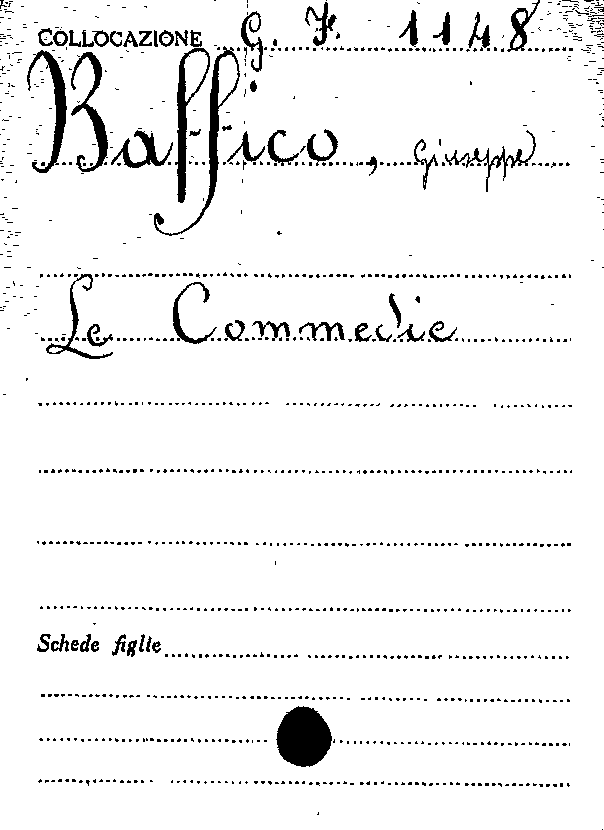 COLLOCAZIONE G. F. 1148
Baffico, Giuseppe
Le Commedie
Schede figlie